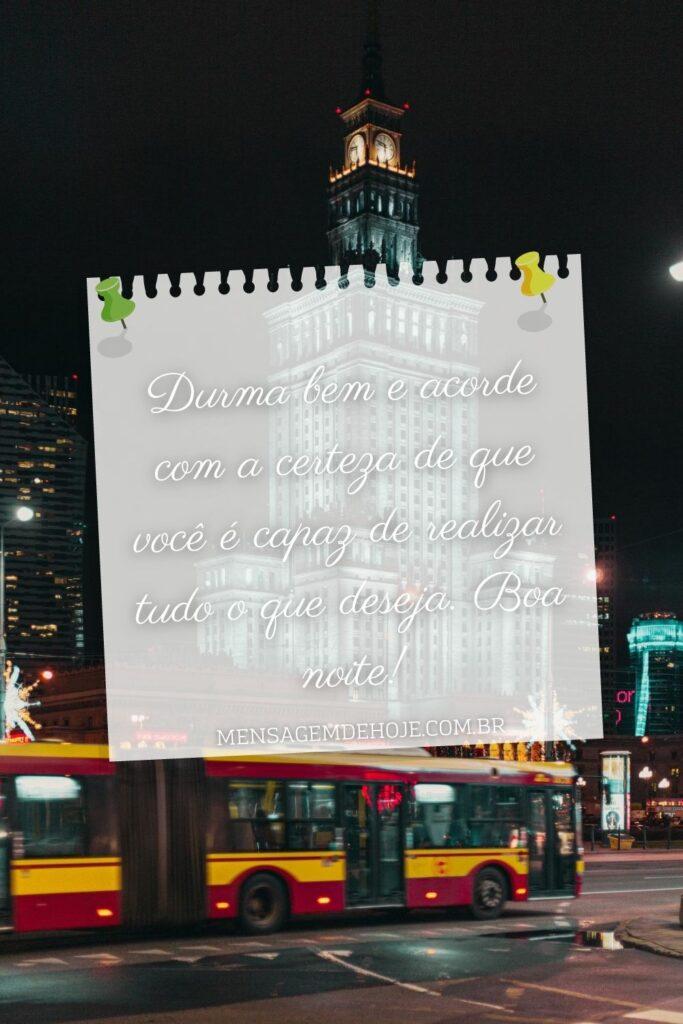 Durma bem e acorde
com a certeza de que
você é capaz de realizar
tudo o que deseja. Boa
noite!
MENSAGEMDEHOJE.COM.BR